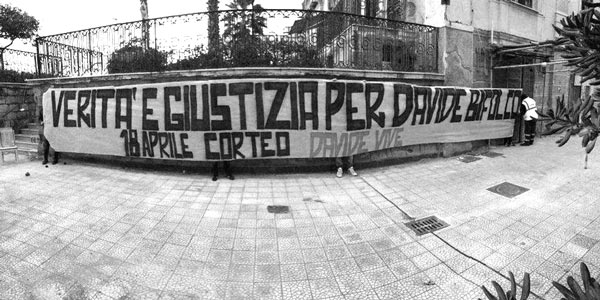 VERITA' E GIUSTIZIA PER DAVIDE BIFOLCO
18 APRILE CORTEO DAVIDE VIVE